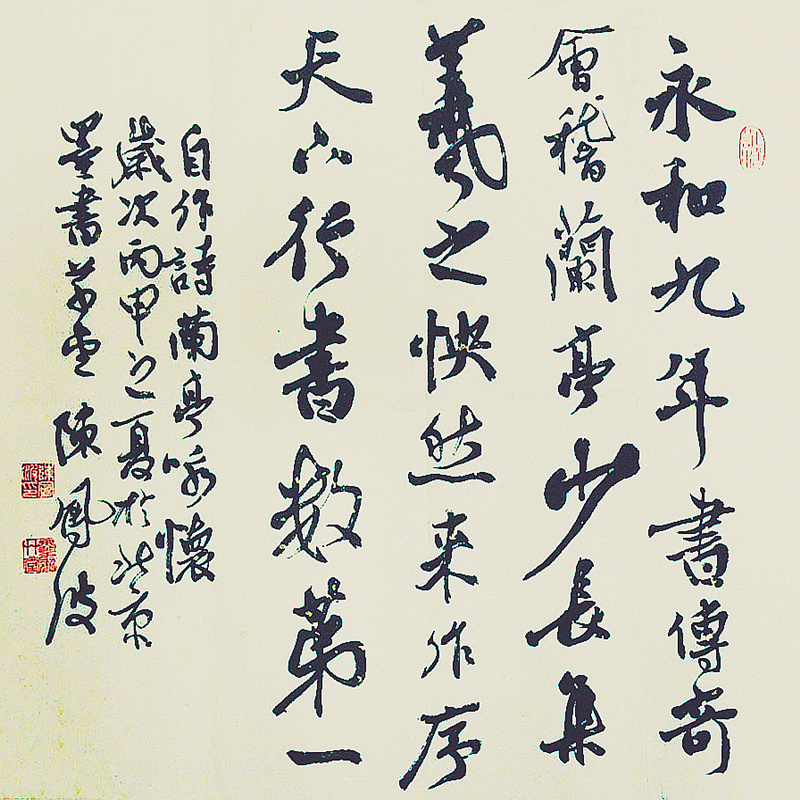 永和九年書傳奇
會稽蘭亭少長集
羲之怏然來作序
天下行書數第一
自作詩蘭亭咏懷
歲次丙申之夏於北京
墨書草堂 陳鳳波